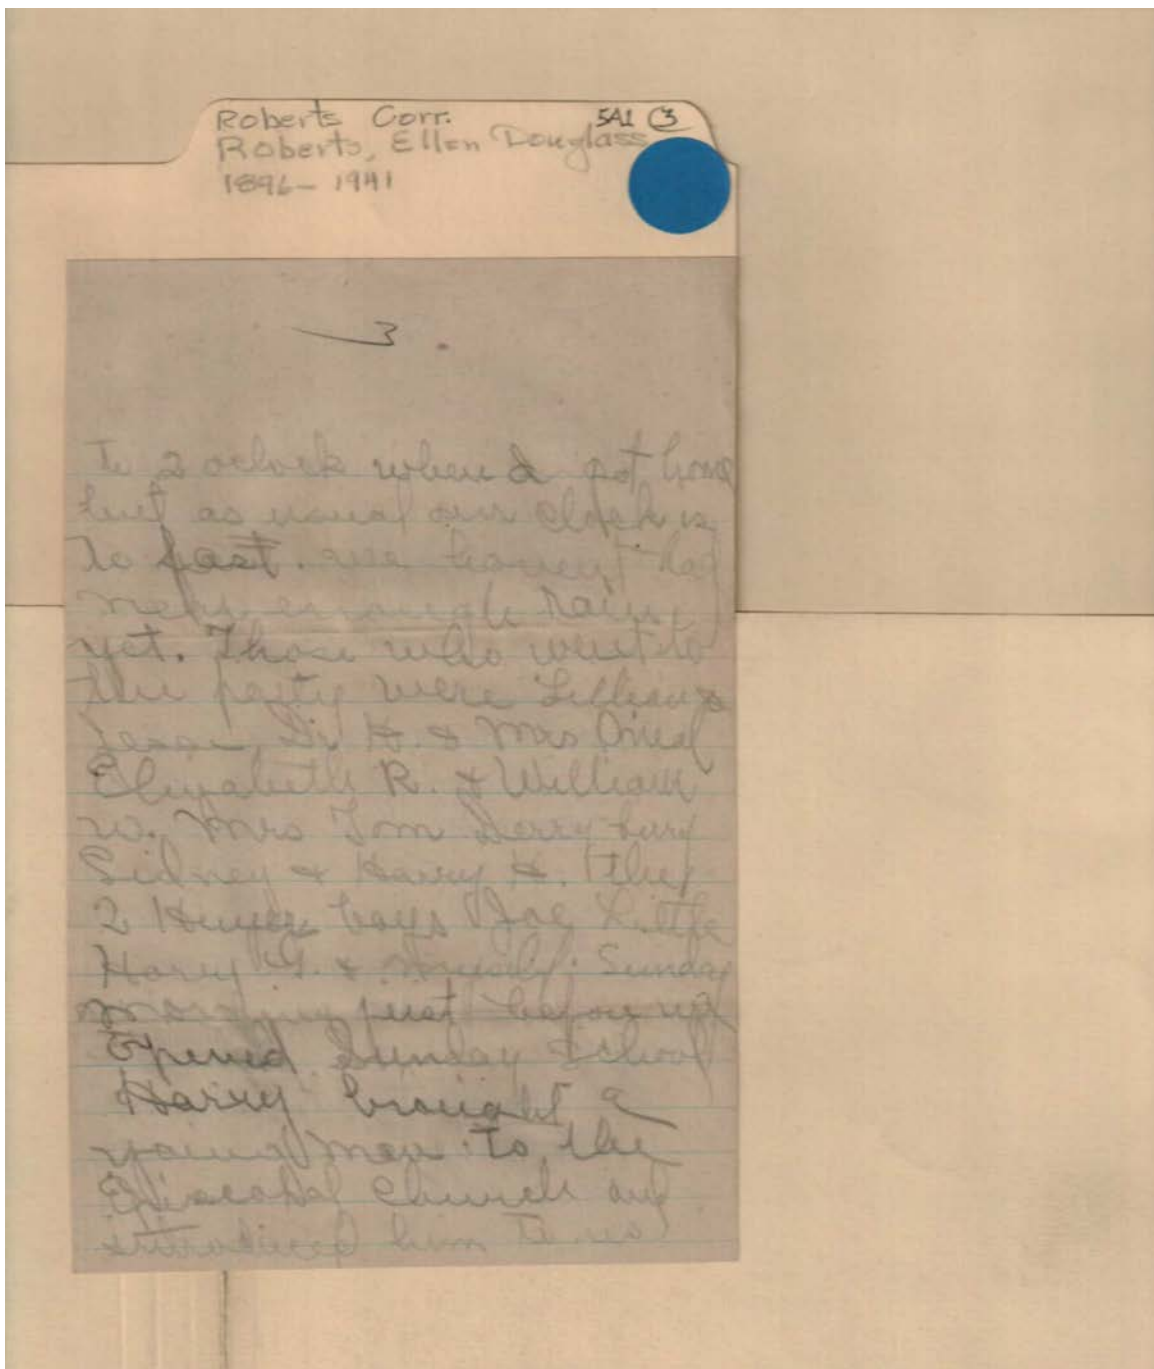 Roberts Corr. 5A1 3
Roberts, Ellen Douglass
1896-1941
3.
To 2 oclock when I got home
but as usual our clock is
to fast. we havent had
near enough rain
yet. Those who went to
the party were Lillian &
Dr H. & Mrs Oneal
Elizabeth R. & William
W. Mrs Tom Derryberry
Sidney & Harry H. the
2 boys Joe Little
Harry G. & myself. Sunday
morning just before we
Opened Sunday School
Harry brought a
young man to the
Episcopal Church and
introduced him to us